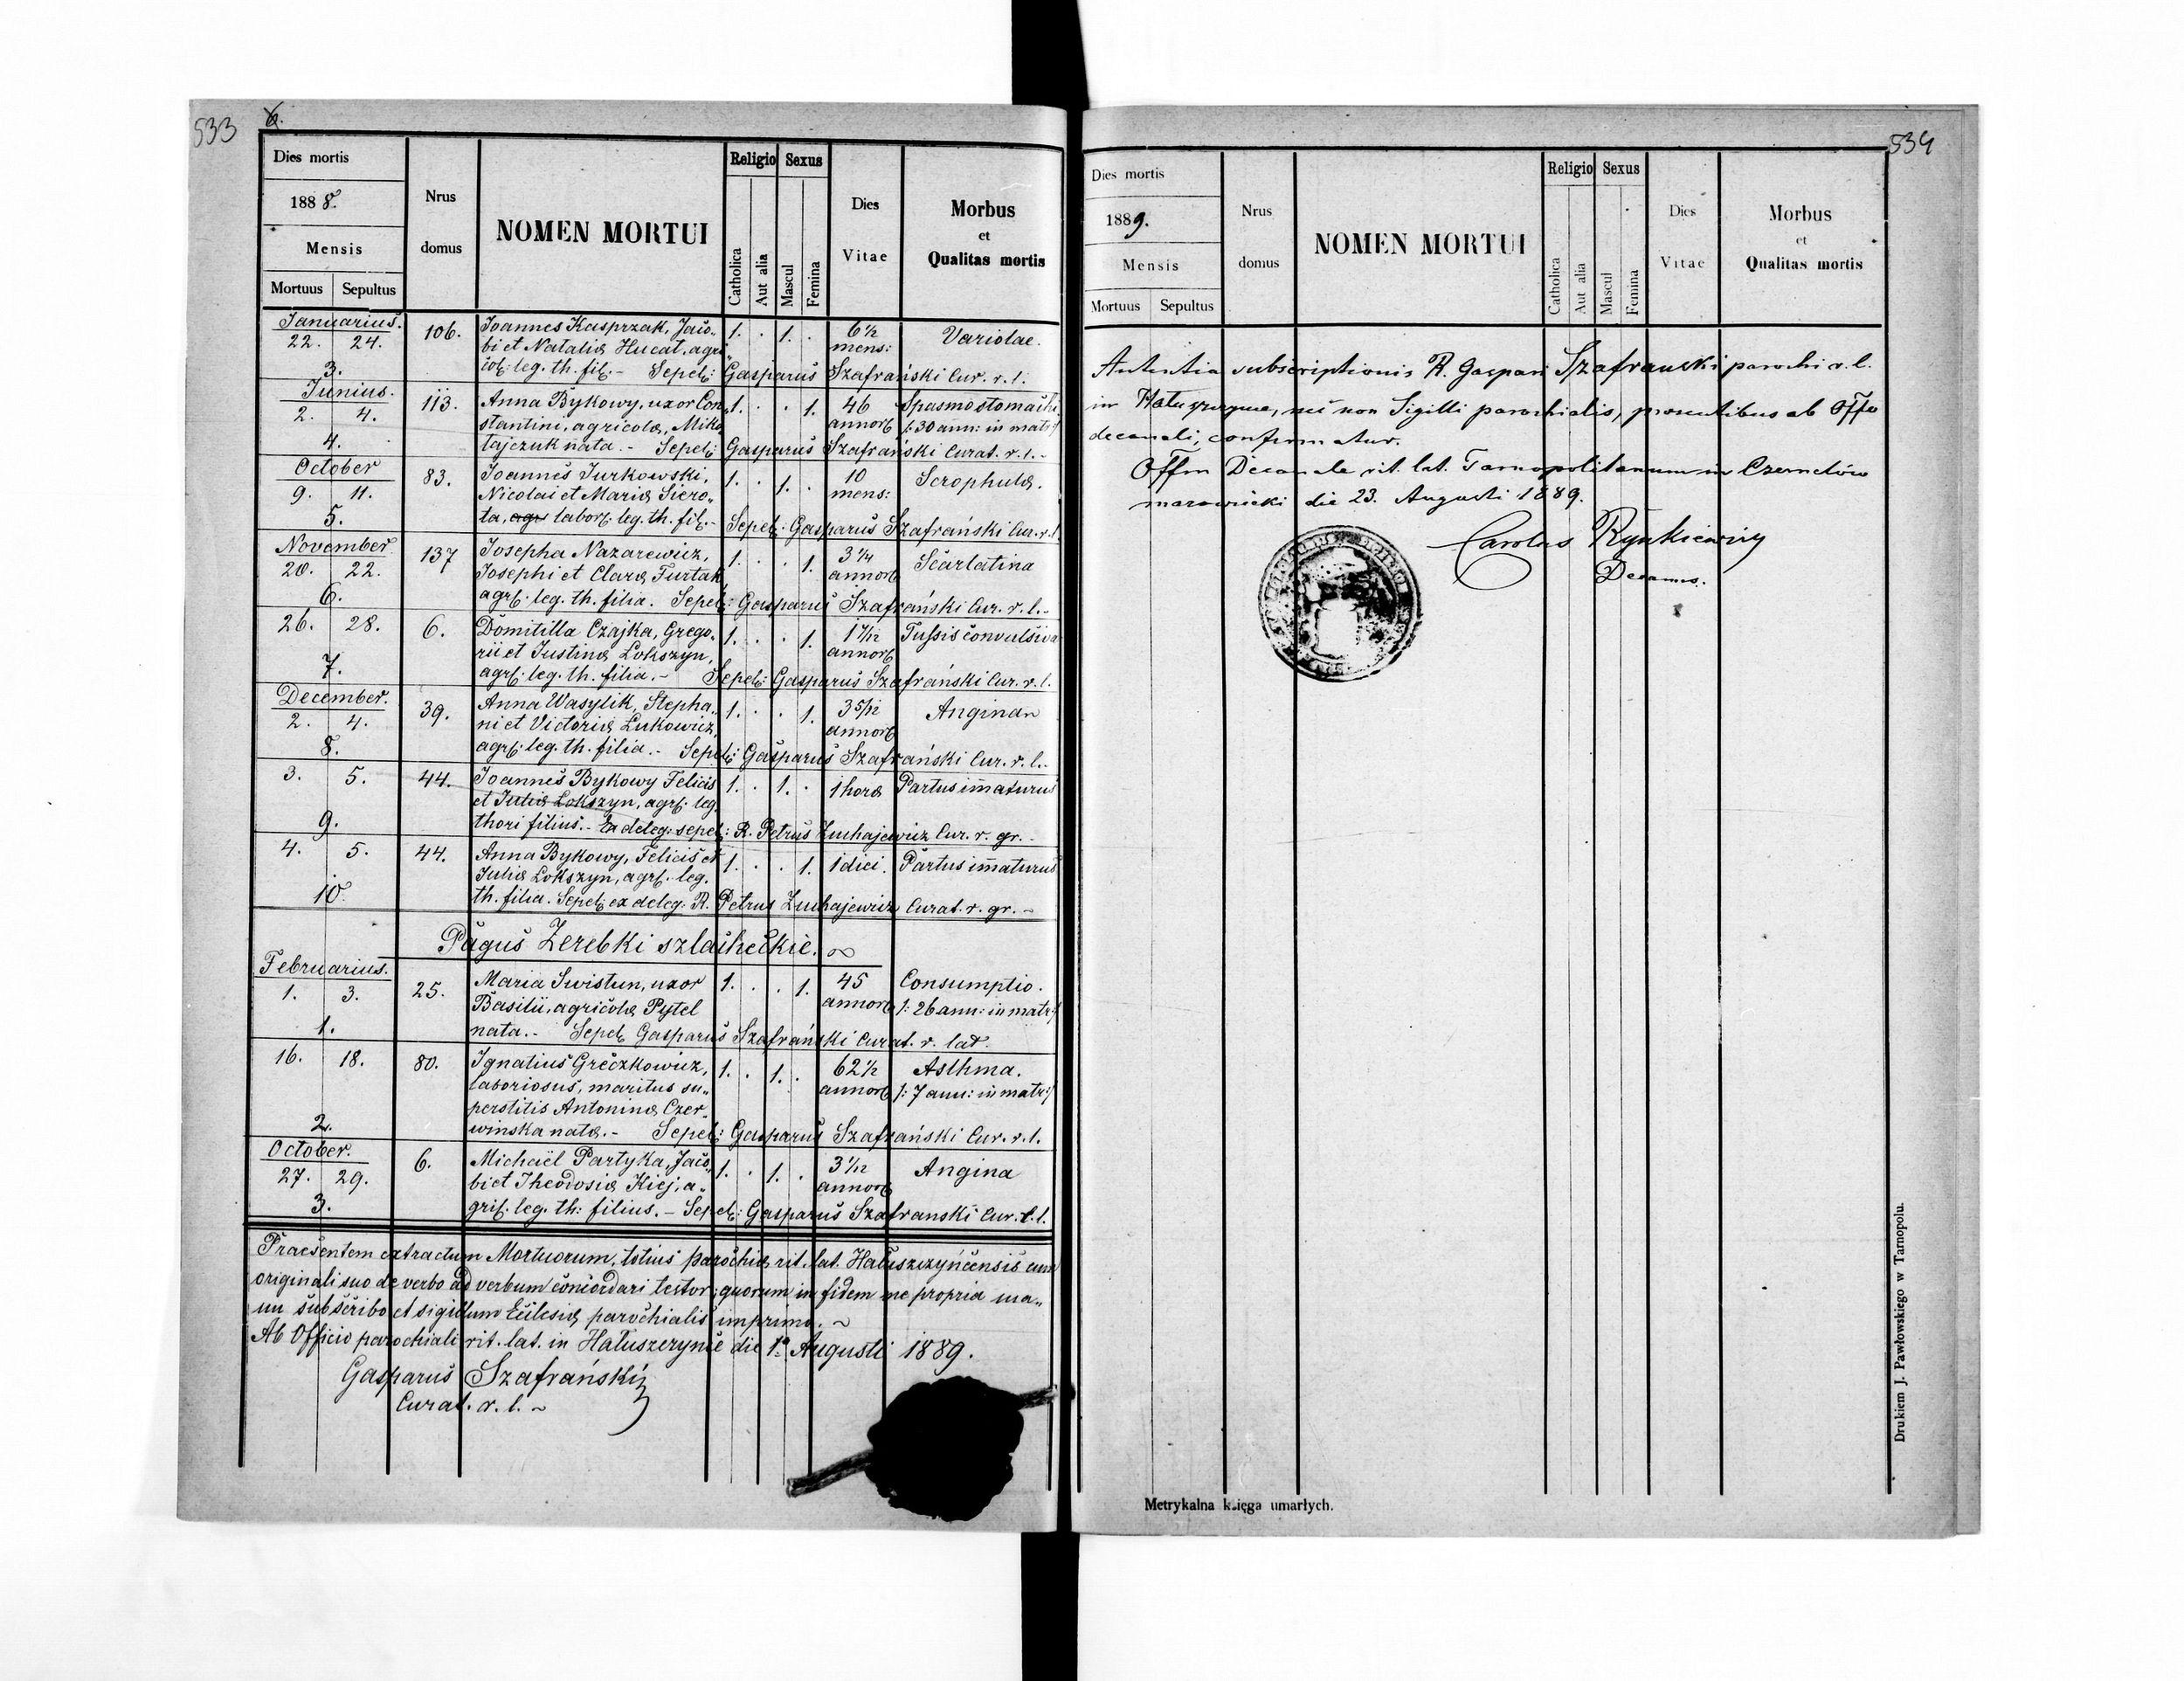 533
6.
Dies mortis
1888.
Mensis
Mortuus Sepultus
Nrus
domus
NOMEN MORTUI
Religio Sexus
Catholica
Aut alia
Mascul
Femina
Dies
Vitae
Morbus
et
Qualitas mortis
Januarius.
22. 24.
3.
106.
Joannes Kasprzak, Jaco„
bi et Natalia Hucat, agri„
col: leg. th. fil.- Sepel: Gasparus Szafrański Cur. r. l.
1. . 1. .
6 1/2
mens:
Variolae.
Junius.
2. 4.
4.
113.
Anna Bykowy, uxor Con„
stantini, agricola, Miko
łajczuk nata.- Sepel: Gasparus Szafrański Curat. r. l.-
1. . . 1.
46
annor
Spasmo stomachi
/:30 ann: in matr:/
October
9. 11.
5.
83.
Joannes Jurkowski,
Nicolai et Maria Siero„
ta, agr labor. leg. th. fil.- Sepel: Gasparus Szafrański Cur. r. l.
1. . 1. .
10
mens:
Scrophula.
November
20. 22.
6.
137
Josepha Nazarewicz,
Josephi et Clara Furtak,
agr: leg. th. filia. Sepel: Gasparus Szafrański Cur. r. l.-
1. . . 1.
3 1/4
annor
Scarlatina
26. 28.
7.
6.
Domitilla Czajka, Grego„
rii et Justina Lokszyn,
agr: leg. th. filia.- Sepel: Gasparus Szafrański Cur. r. l.
1. . . 1.
annor
Tussis convulsiva
December.
2. 4.
8.
39.
Anna Wasylik, Stepha„
ni et Victoria Lukowicz,
agr: leg. th. filia.- Sepel: Gasparus Szafrański Cur. r. l.-
1. . . 1.
3 5/12
annor
Anginan
3. 5.
9.
44.
Joannes Bykowy Felicis
et Julia Lokszyn, agr: leg.
thori filius.- Ex deleg: sepel: R. Petrus Zuchajewicz Cur. r. gr.-
1. . 1. .
1 hora
Partus im̄aturus
4. 5.
10
44.
Anna Bykowy, Felicis et
Julia Lokszyn, agr: leg.
th. filia. Sepel: ex deleg: R. Petrus Zuchajewicz Curat. r. gr.-
1. . . 1.
1 diei.
Partus im̄aturus
Pagus Zerebki szlacheckie.
Februarius.
1. 3.
1.
25.
Maria Swistun, uxor
Basilii, agricola Pytel
nata.- Sepel: Gasparus Szafrański Curat. r. lat.
1. . . 1.
45
annor
Consumptio.
/:26 ann: in matr:/
16. 18.
2.
80.
Ignatius Greczkowicz,
laboriosus, maritus su„
perstitis Antonina Czer„
winska nata.- Sepel: Gasparus Szafrański Cur. r. l.
1. . 1. .
62 1/2
annor
Asthma.
/:7 ann: in matr:/
October.
27. 29.
3.
6.
Michaël Partyka, Jaco„
bi et Theodosia Kiej, a„
gri: leg. th: filius.- Sepel: Gasparus Szafranski Cur. r. l.
1. . 1. .
3 1/12
annor
Angina
Praesentem extractum Mortuorum, totius parochia rit. lat. Hałuszczyńcensis cum
originali suo de verbo ad verbum concordari testor, quorum in fidem me propria ma„
nu subscribo et sigillum Ecclesia parochialis imprimo.
Ab Officio parochiali rit. lat. in Hałuszczynce die 1a Augusti 1889.
Gasparus Szafrański
Curat. r. l.
534
Dies mortis
1889.
Mensis
Mortuus Sepultus
Nrus
domus
NOMEN MORTUI
Religio Sexus
Catholica
Aut alia
Mascul
Femina
Dies
Vitae
Morbus
et
Qualitas mortis
subscriptionis R. Gaspari Szafranski parochi r. l.
in nec non Sigilli parochialis, praesentibus ab Offo
decanali, confirmatur.
Offm Decanale rit. lat. Tarnopolitanum in Czernelów
mazowiecki die 23. Augusti 1889.
Carolus Rynkiewicz
Decanus.
Drukiem J. Pawłowskiego w Tarnopolu.
Metrykalna księga umarłych.